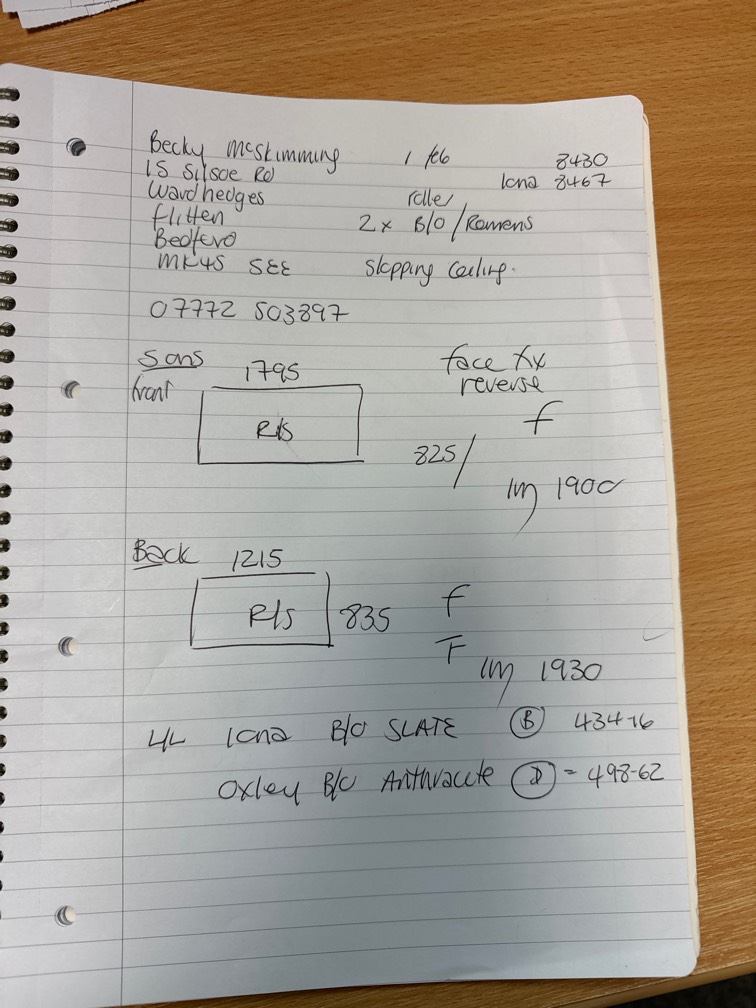 Becky McSkimming 1 feb 8430
15 Silsoe Rd Iona 8467
Wardhedges roller
flitten 2x B/O / Romens
Bedford
MK45 5EE slopping ceiling.
07772 503897
Sons 1795 face fix
front reverse
R/S f
825/
1900
Back 1215
R/S 835 f
F
1930
L/L Iona B/O SLATE (B) 434-16
Oxley B/O Anthracite (D) = 498-62